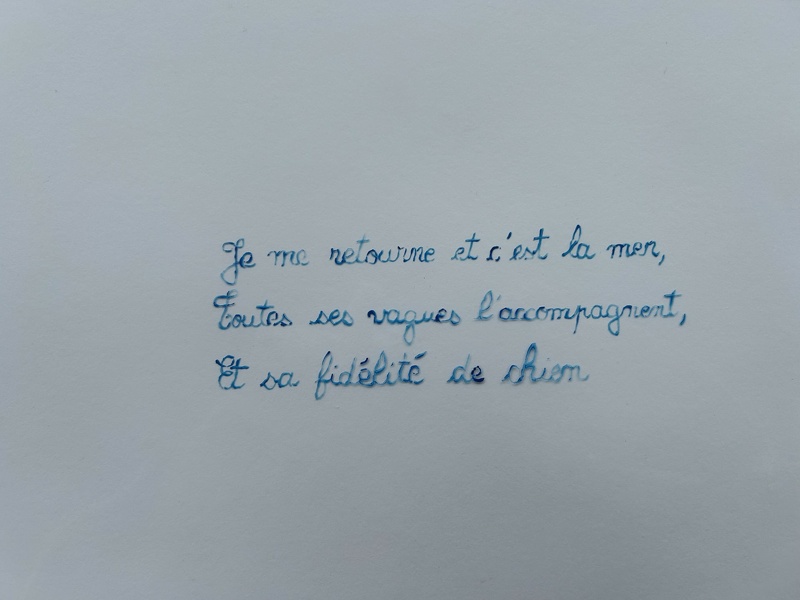 Je me retourne et c'est la mer,
Toutes ses vagues l'accompagnent,
Et sa fidélité de chien